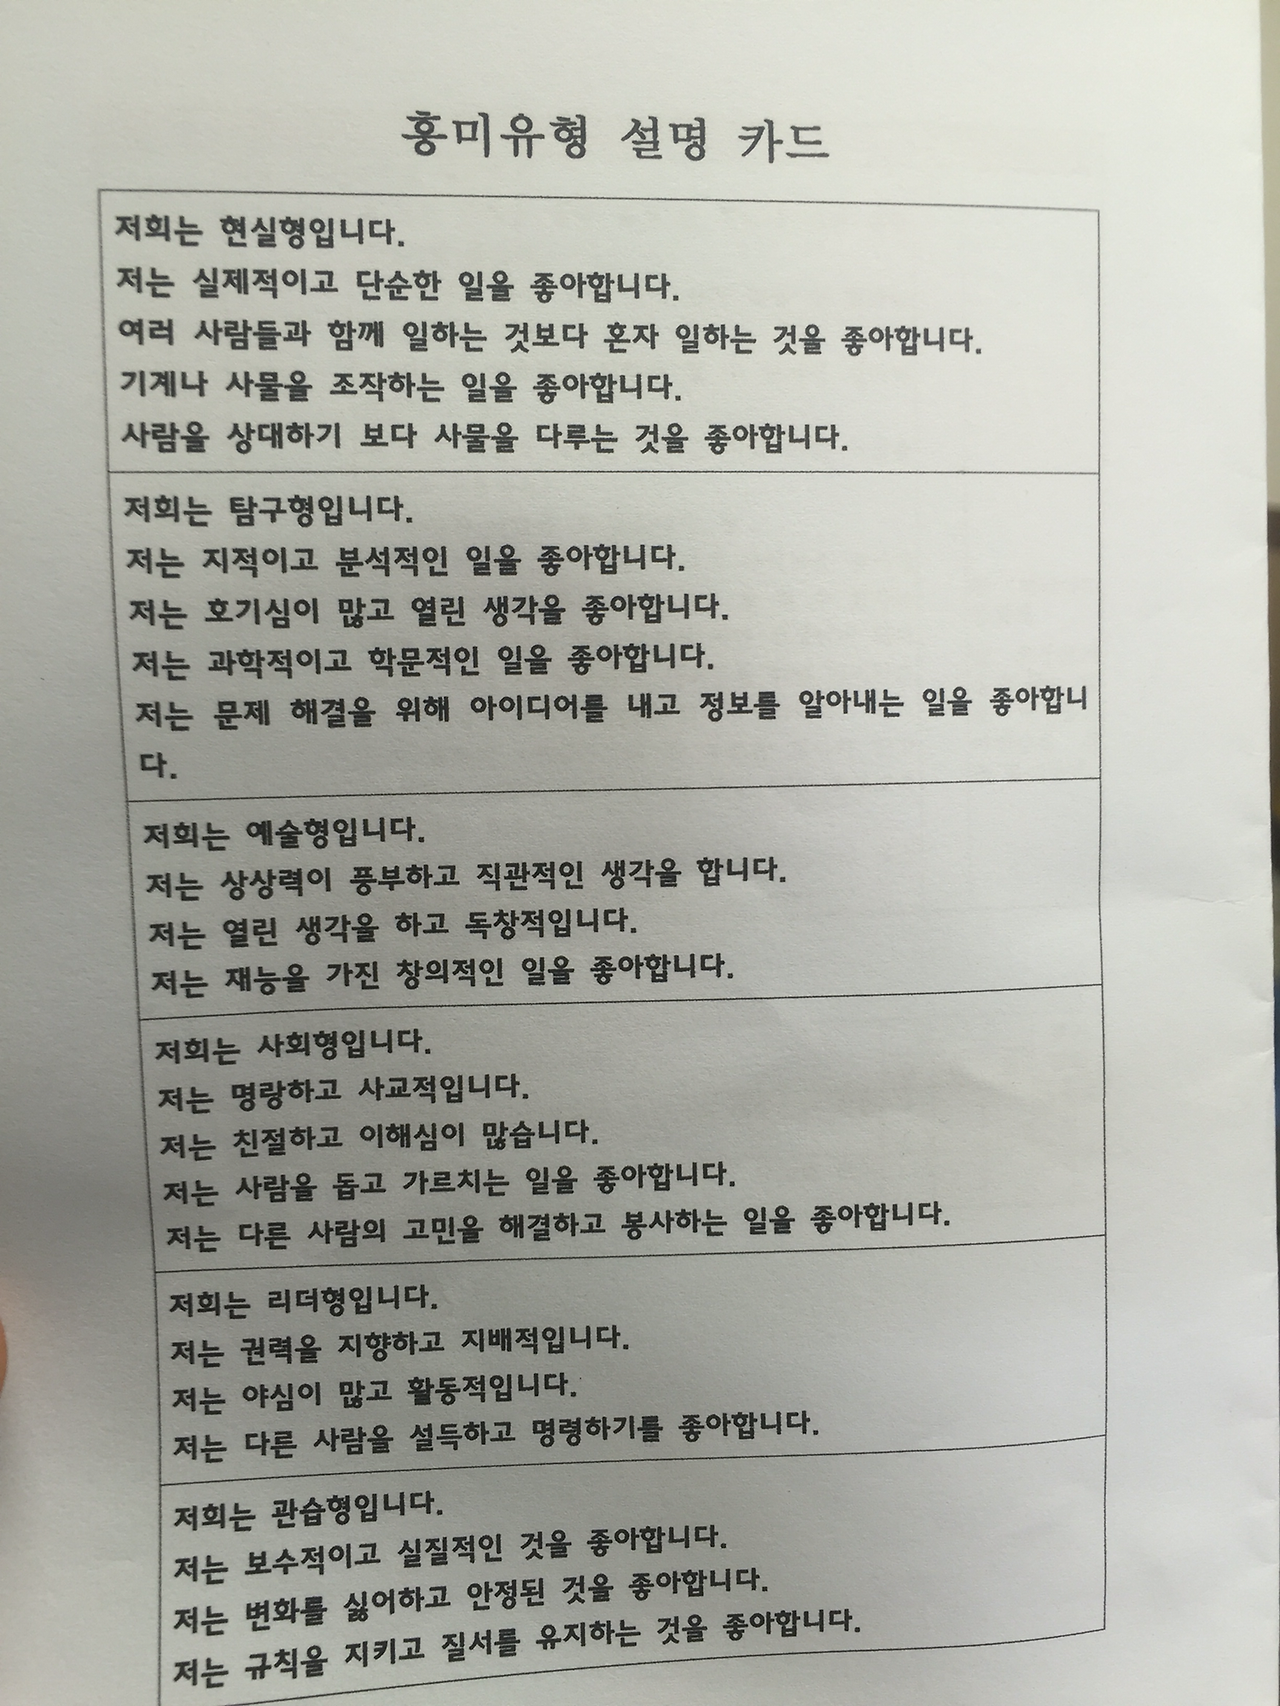 흥미유형 설명 카드
저희는 현실형입니다.
저는 실제적이고 단순한 일을 좋아합니다.
여러 사람들과 함께 일하는 것보다 혼자 일하는 것을 좋아합니다.
기계나 사물을 조작하는 일을 좋아합니다.
사람을 상대하기 보다 사물을 다루는 것을 좋아합니다.
저희는 탐구형입니다.
저는 지적이고 분석적인 일을 좋아합니다.
저는 호기심이 많고 열린 생각을 좋아합니다.
저는 과학적이고 학문적인 일을 좋아합니다.
저는 문제 해결을 위해 아이디어를 내고 정보를 알아내는 일을 좋아합니
다.
저희는 예술형입니다.
저는 상상력이 풍부하고 직관적인 생각을 합니다.
저는 열린 생각을 하고 독창적입니다.
저는 재능을 가진 창의적인 일을 좋아합니다.
저희는 사회형입니다.
저는 명랑하고 사교적입니다.
저는 친절하고 이해심이 많습니다.
저는 사람을 돕고 가르치는 일을 좋아합니다.
저는 다른 사람의 고민을 해결하고 봉사하는 일을 좋아합니다.
저희는 리더형입니다.
저는 권력을 지향하고 지배적입니다.
저는 야심이 많고 활동적입니다.
저는 다른 사람을 설득하고 명령하기를 좋아합니다.
저희는 관습형입니다.
저는 보수적이고 실질적인 것을 좋아합니다.
저는 변화를 싫어하고 안정된 것을 좋아합니다.
저는 규칙을 지키고 질서를 유지하는 것을 좋아합니다.